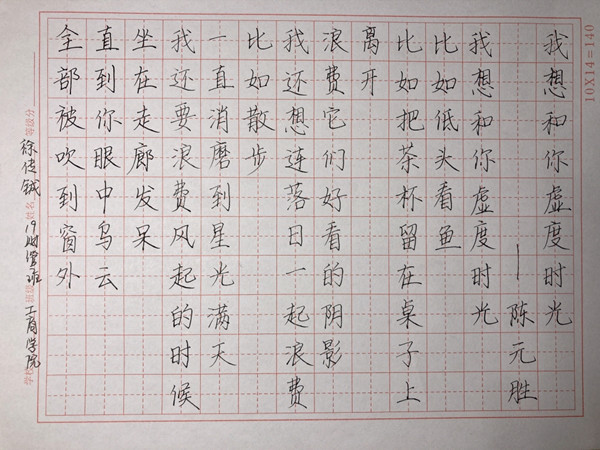 我想和你虚度时光
——陈元胜
我想和你虚度时光
比如低头看鱼
比如把茶杯留在桌子上
离开
浪费它们好看的阴影
我还想连落日一起浪费
比如散步
一直消磨到星光满天
我还要浪费风起的时候
坐在走廊发呆
直到你眼中乌云
全部被吹到窗外
10X14=140
19财管班 工商学院